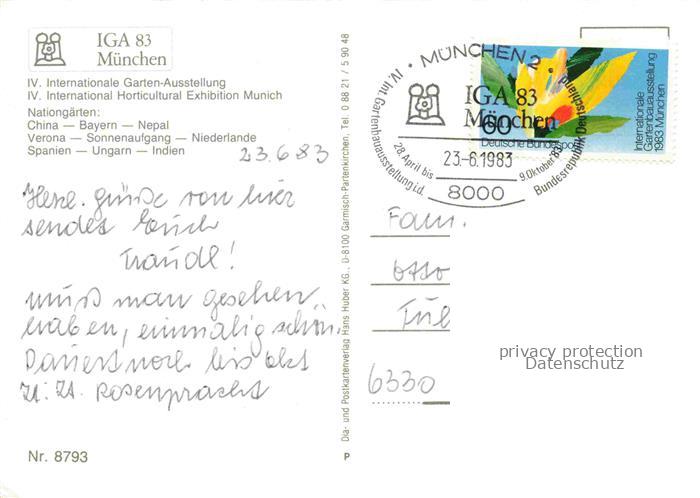 IGA 83
München
IV. Internationale Garten-Ausstellung
IV. International Horticultural Exhibition Munich
Nationgärten:
China — Bayern — Nepal
Verona — Sonnenaufgang — Niederlande
Spanien — Ungarn — Indien
23.6.83
Herzl. grüße von hier
sendet Euch
Traudl!
muß man gesehen
haben, einmalig schön.
Dauert noch bis Okt
Rosenpracht
Nr. 8793
Dia- und Postkartenverlag Hans Huber KG., D-8100 Garmisch-Partenkirchen, Tel. 0 88 21 / 5 90 48
P
MÜNCHEN 2
IV. Int. Gartenbauausstellung i.d. Bundesrepublik Deutschland
IGA 83
München
28. April bis
9. Oktober '83
23.-6.1983
8000
60
Deutsche Bundespost
Internationale
Gartenbauausstellung
1983 München
Fam.
Otto
6330
privacy protection
Datenschutz